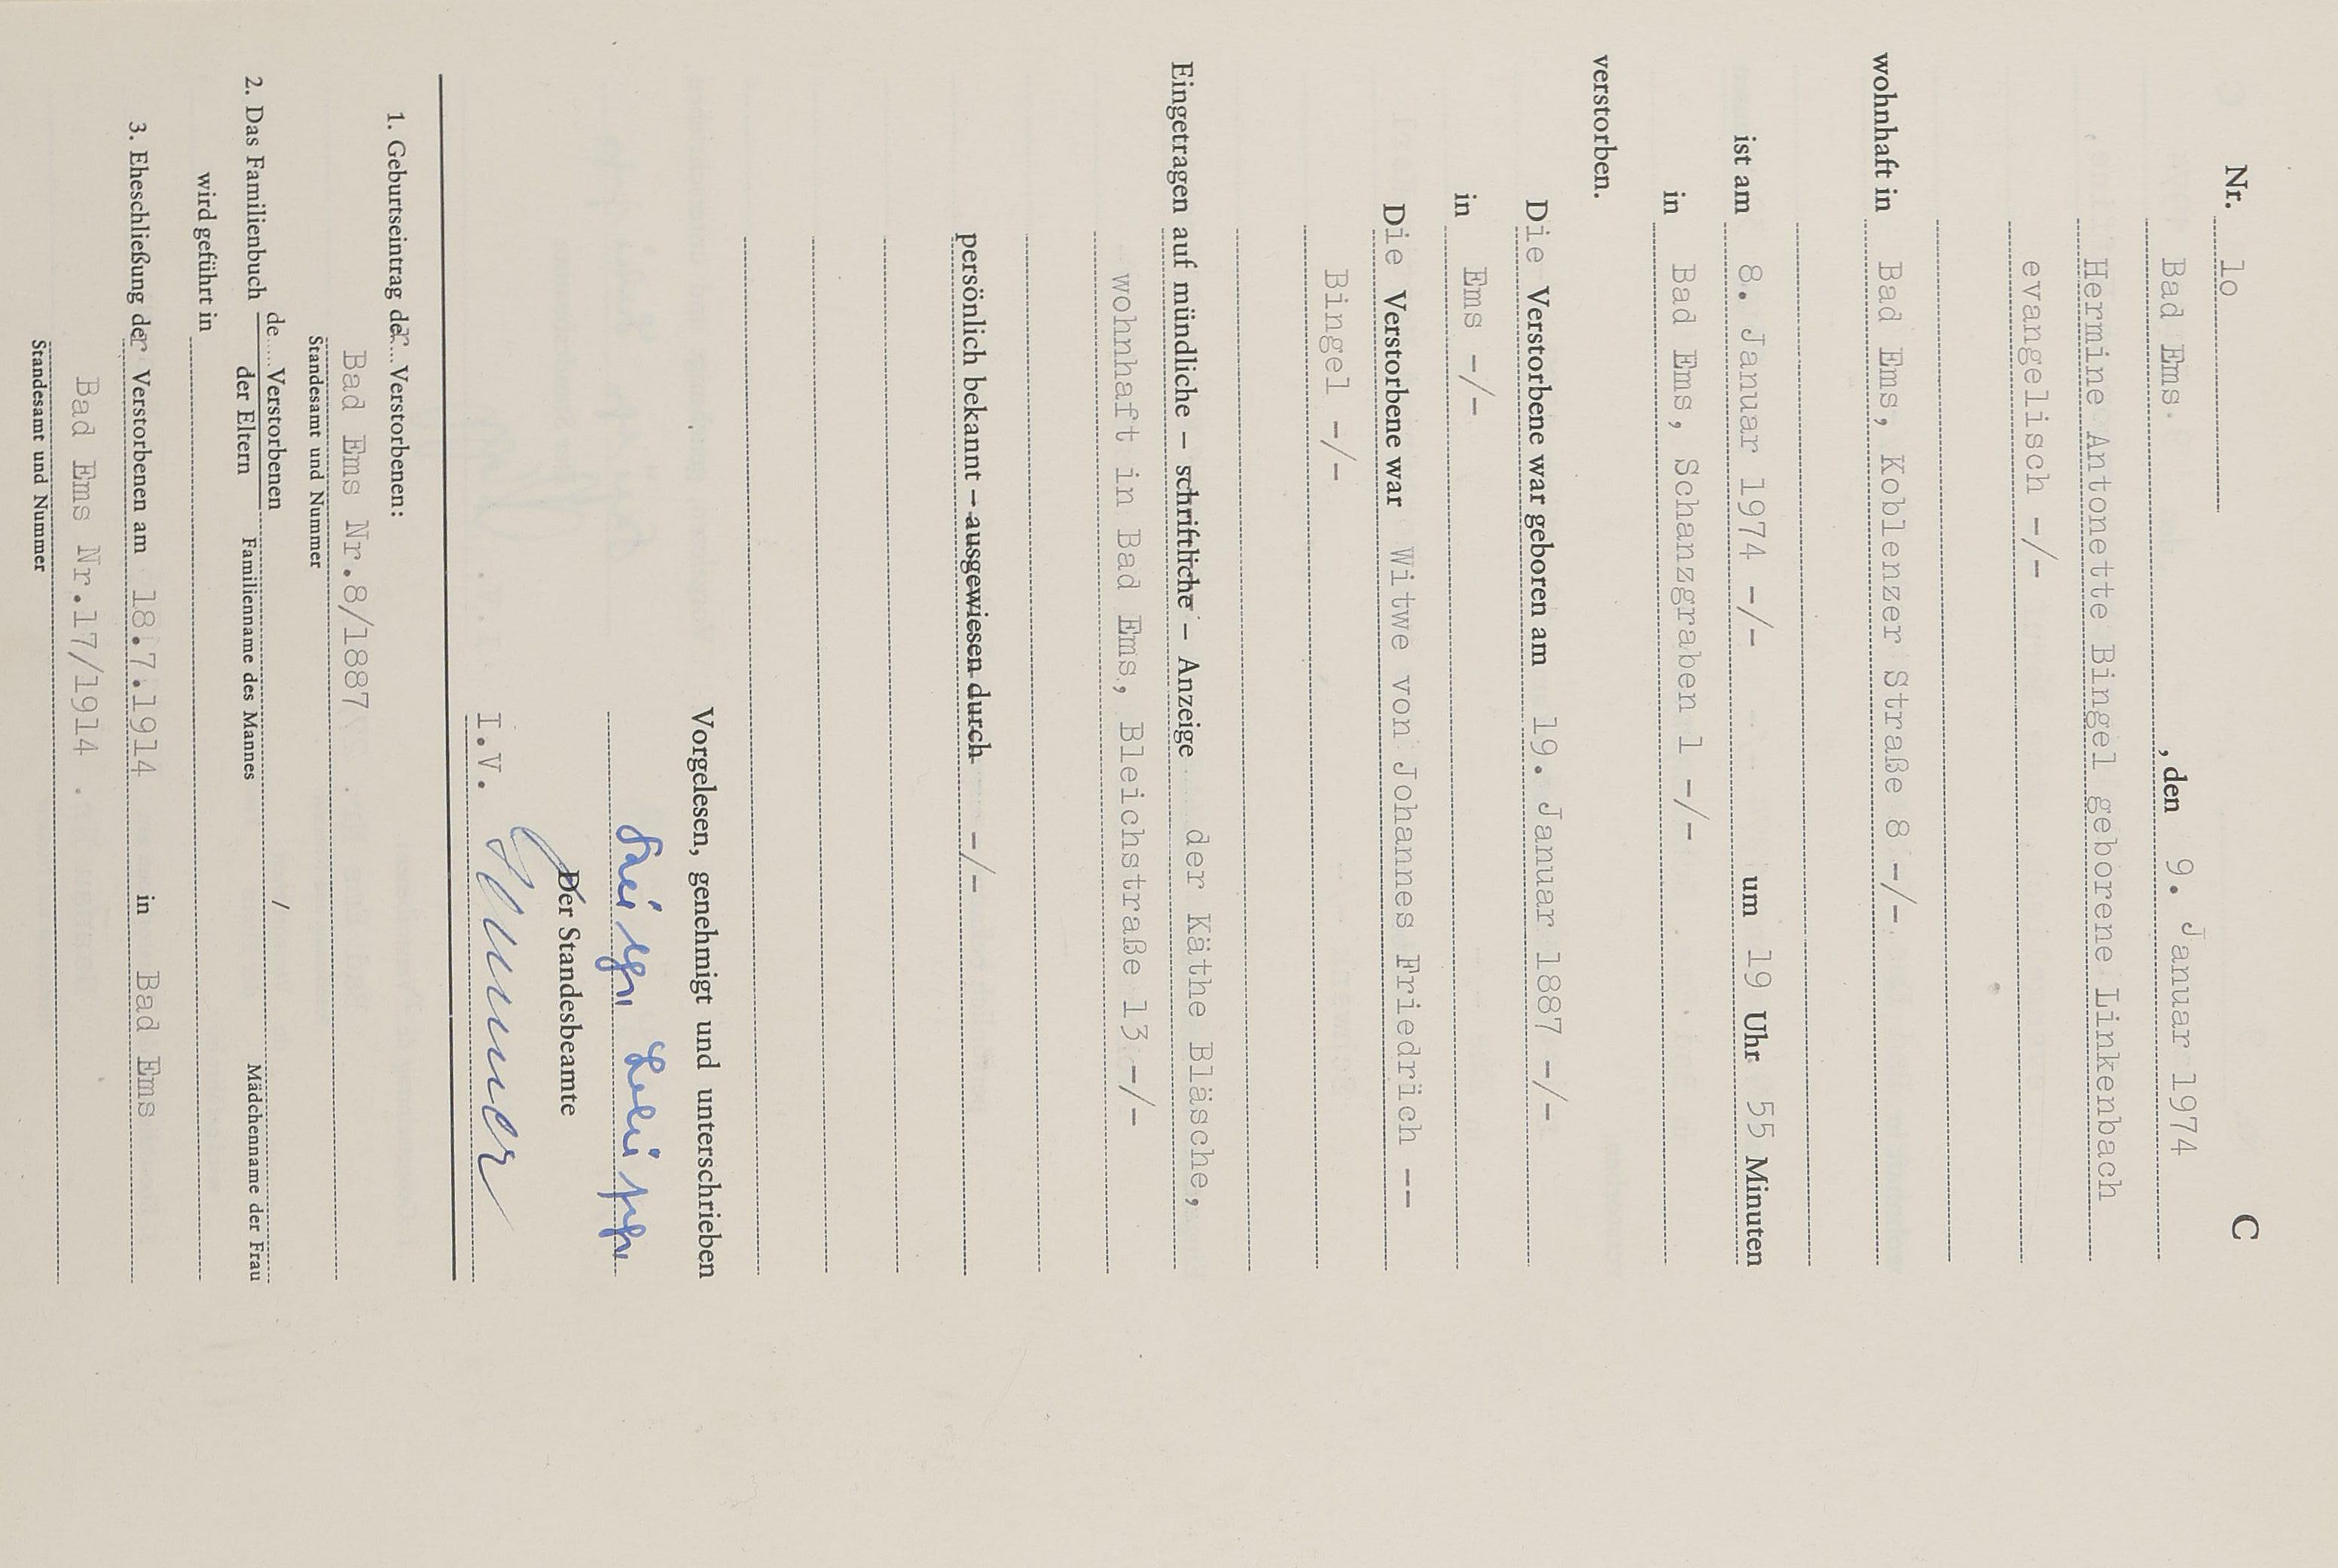 Nr. lo C
Bad Ems , den 9. Januar 1974
Hermine Antonette Bingel geborene Linkenbach
evangelisch -/-
wohnhaft in Bad Ems, Koblenzer Straße 8 -/-
ist am 8. Januar 1974 -/- um 19 Uhr 55 Minuten
in Bad Ems, Schanzgraben 1 -/-
verstorben.
Die Verstorbene war geboren am 19. Januar 1887 -/-
in Ems -/-
Die Verstorbene war Witwe von Johannes Friedrich --
Bingel -/-
Eingetragen auf mündliche – schriftliche – Anzeige der Käthe Bläsche,
wohnhaft in Bad Ems, Bleichstraße 13 -/-
persönlich bekannt – ausgewiesen durch -/-
Vorgelesen, genehmigt und unterschrieben
Der Standesbeamte
I.V.
1. Geburtseintrag der Verstorbenen:
Bad Ems Nr.8/1887
Standesamt und Nummer
2. Das Familienbuch de.... Verstorbenen /
der Eltern Familienname des Mannes Mädchenname der Frau
wird geführt in
3. Eheschließung der Verstorbenen am 18.7.1914 in Bad Ems
Bad Ems Nr.17/1914
Standesamt und Nummer